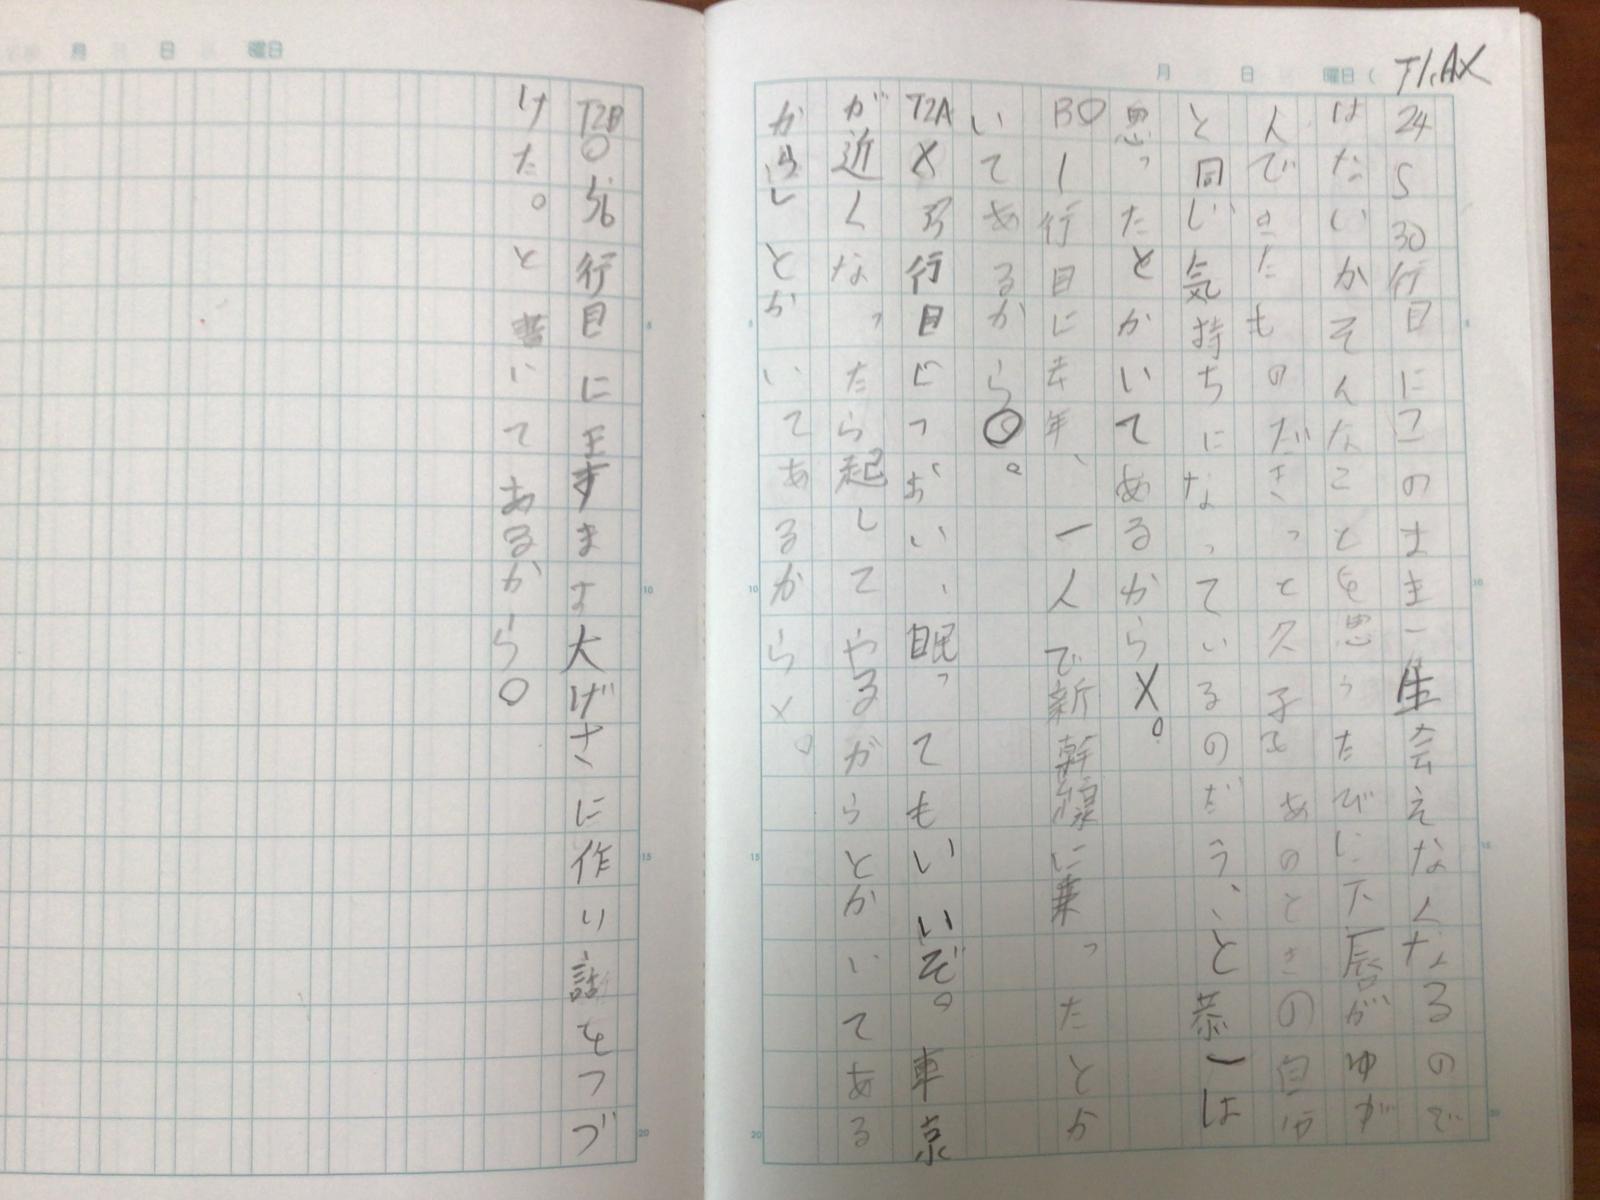 T1.AX
24〜30行目にこのまま一生会えなくなるので
はないかそんなことを思うたびに下唇がゆが
んできたものだきっと久子もあのときの自分
と同じ気持ちになっているのだろう、と恭一は
思ったとかいてあるからX。
BO1行目に去年、一人で新幹線に乗ったとか
いてあるから○。
T2AX 行目につおい、眠ってもいいいぞ。東京
が近くなったら起してやるがらとかいてある
からしとかいてあるからX。
T2B○ 行目に王すますま大げさに作り話をつづ
けた。と書いてあるから○
月 日 曜日
月 日 曜日(
5
10
15
20
5
10
15
20